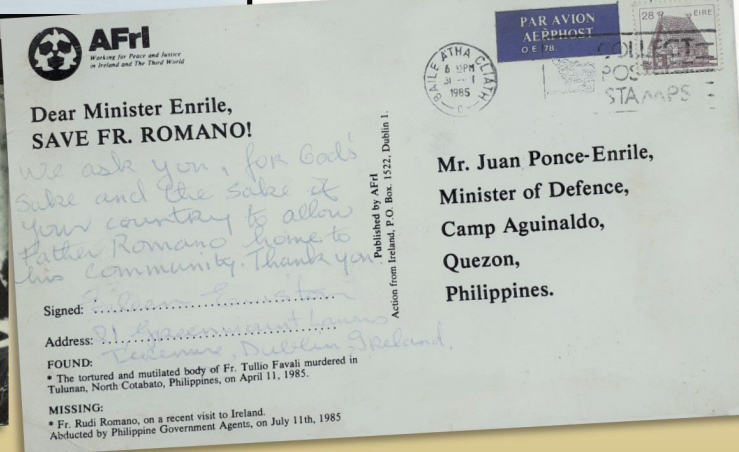 AFrI
Working for Peace and Justice
in Ireland and The Third World
Dear Minister Enrile,
SAVE FR. ROMANO!
We ask you, for God's
sake and the sake of
your country to allow
Father Romano home to
his community. Thank you.
Signed:
Address: 81 Greenmount Lawns
Terenure, Dublin Ireland.
FOUND:
* The tortured and mutilated body of Fr. Tullio Favali murdered in
Tulunan, North Cotabato, Philippines, on April 11, 1985.
MISSING:
* Fr. Rudi Romano, on a recent visit to Ireland.
Abducted by Philippine Government Agents, on July 11th, 1985
Published by AFrI
Action from Ireland, P.O. Box. 1522, Dublin 1.
PAR AVION
AERPHOST
O.E. 78.
28 EIRE
BAILE ÁTHA CLIATH
1985
C
COLLECT
POSTAGE
STAMPS
Mr. Juan Ponce-Enrile,
Minister of Defence,
Camp Aguinaldo,
Quezon,
Philippines.